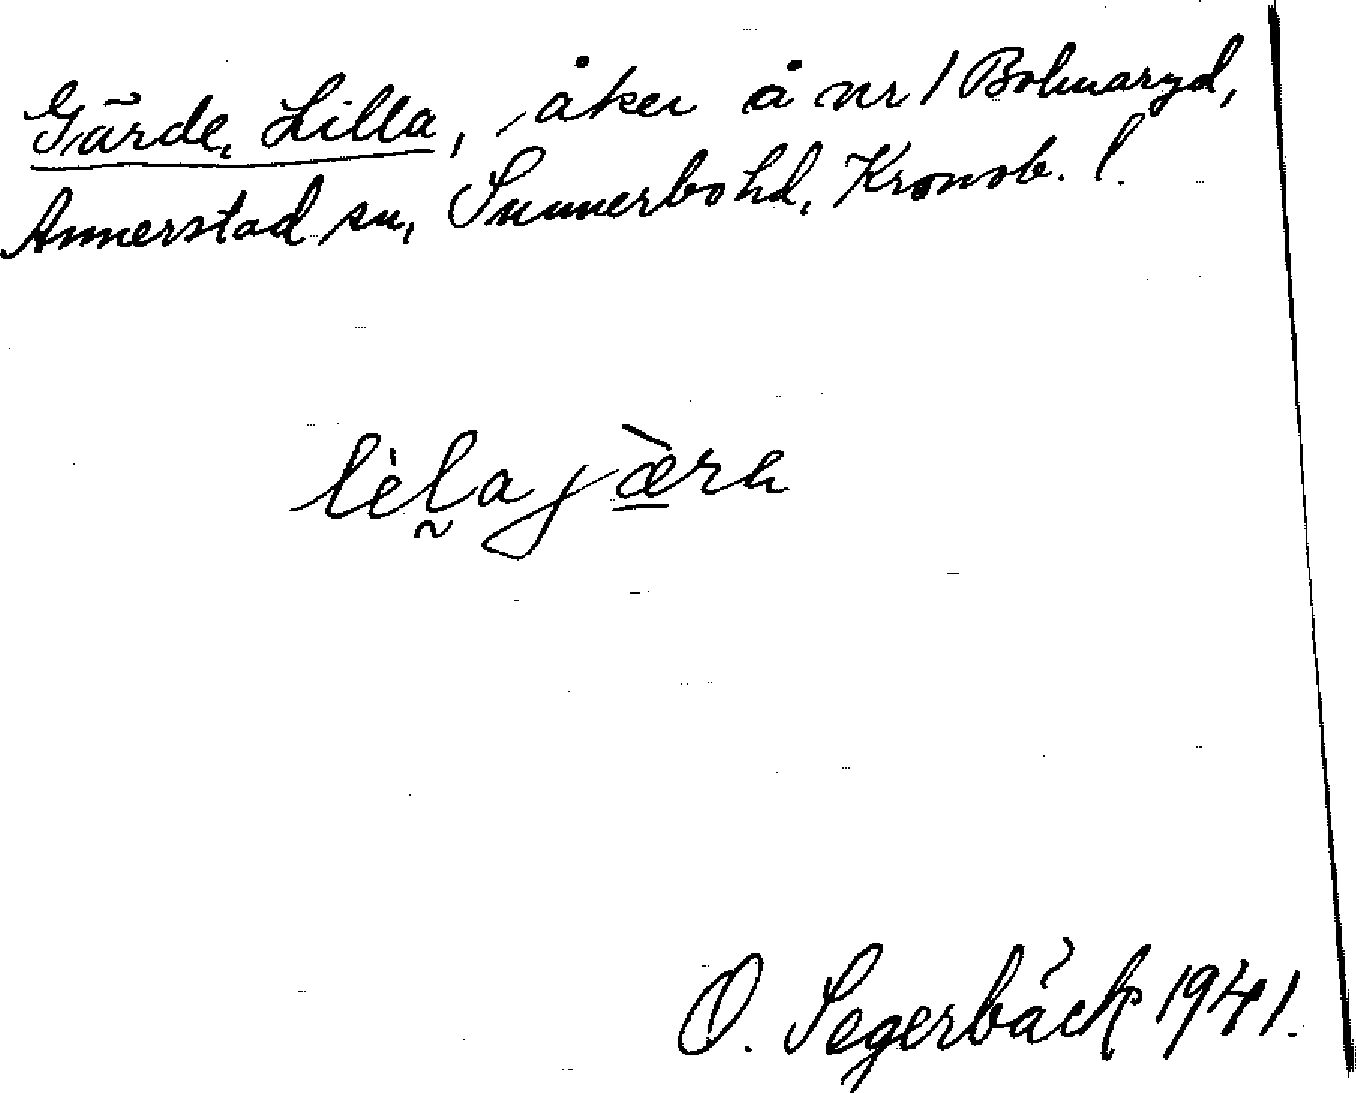 Gärde, Lilla, åker å nr 1 Bolmaryd,
Annerstad sn, Sunnerbo hd, Kronob. l.
lèl̰a jæ̱̀ra
O. Segerbäck 1941.